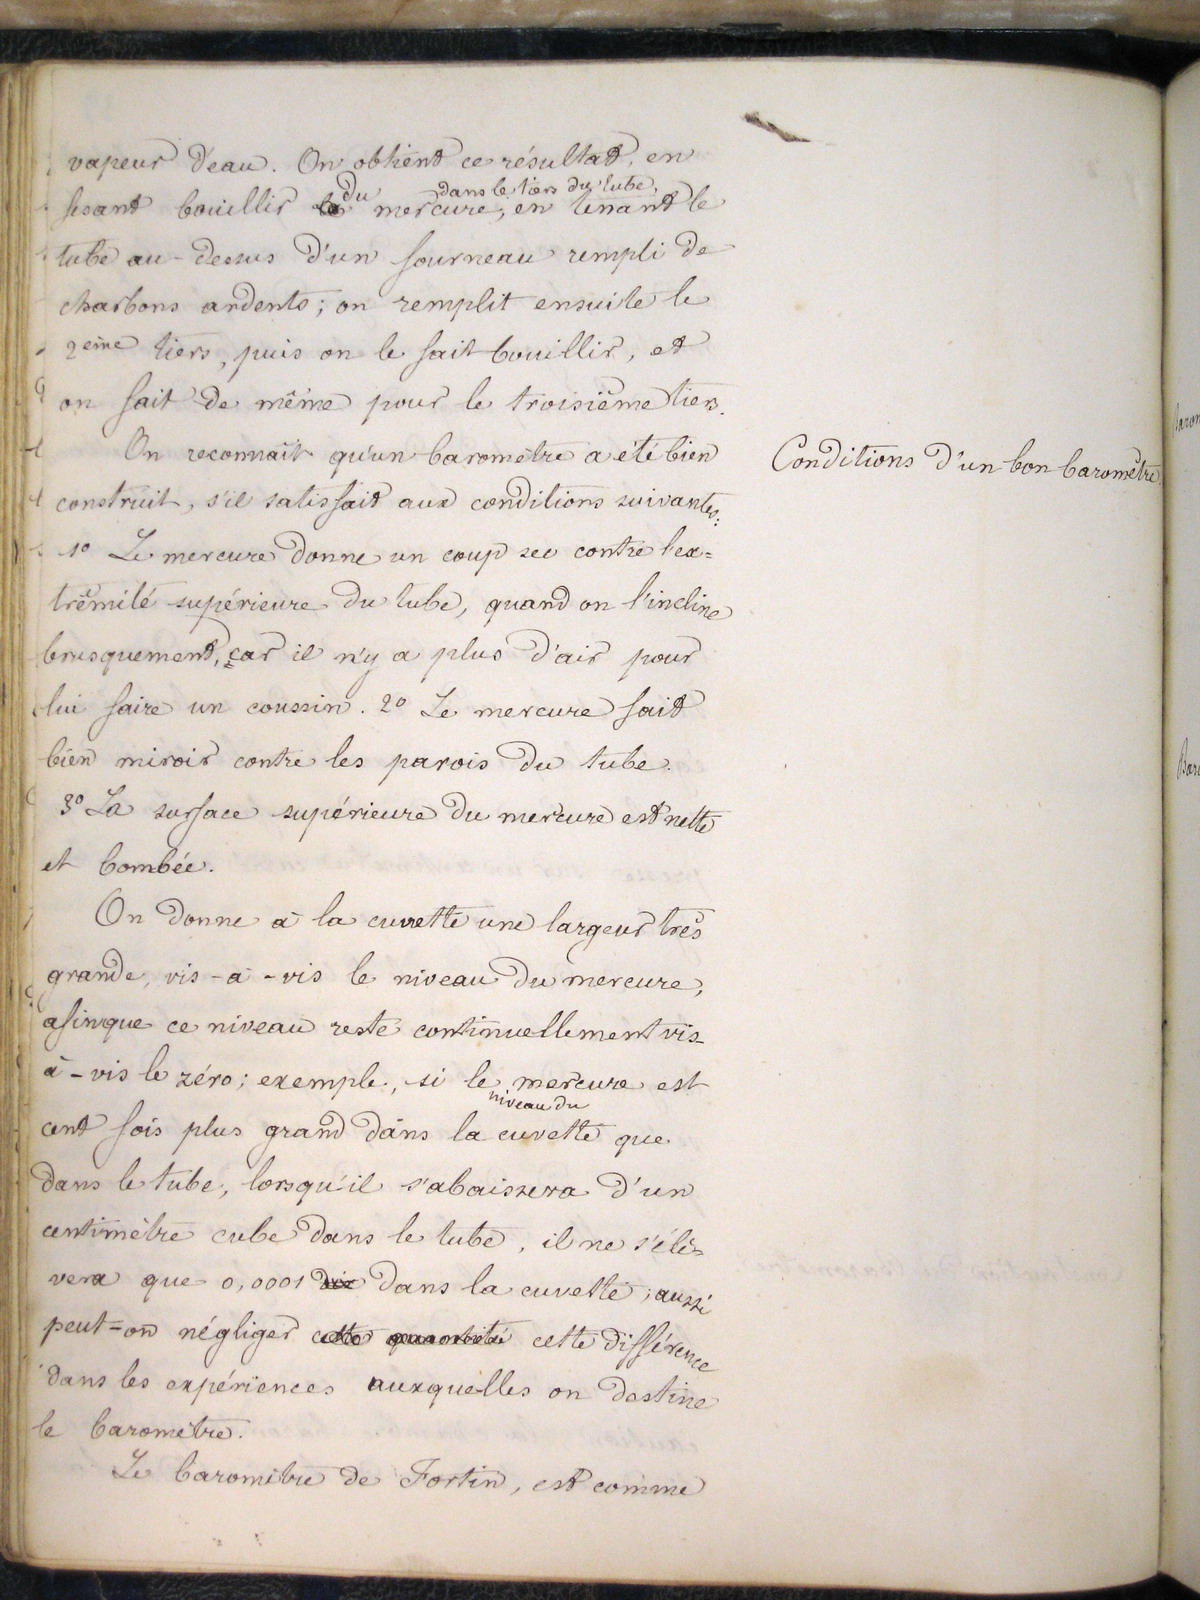 vapeur d'eau. On obtient ce résultat, en
fesant bouillir le du mercure, dans le tiers du tube, en tenant le
tube au-dessus d'un fourneau rempli de
charbons ardents; on remplit ensuite le
2ème tiers, puis on le fait bouillir, et
on fait de même pour le troisième tiers.
On reconnait qu'un baromètre a été bien
Conditions d'un bon baromètre.
construit, s'il satisfait aux conditions suivantes:
1º Le mercure donne un coup sec contre l'ex=
trêmité supérieure du tube, quand on l'incline
brusquement, car il n'y a plus d'air pour
lui faire un coussin. 2º Le mercure fait
bien miroir contre les parois du tube.
3º La surface supérieure du mercure est nette
et bombée.
On donne à la cuvette une largeur très
grande, vis-à-vis le niveau du mercure,
afinque ce niveau reste continuellement vis-
à-vis le zéro; exemple, si le niveau du mercure est
cent fois plus grand dans la cuvette que
dans le tube, lorsqu'il s'abaissera d'un
centimètre cube dans le tube, il ne s'élè=
vera que 0,0001 dix dans la cuvette; aussi
peut=on négliger cette quantité cette différence
dans les expériences auxquelles on destine
le baromètre.
Le baromètre de Fortin, est comme